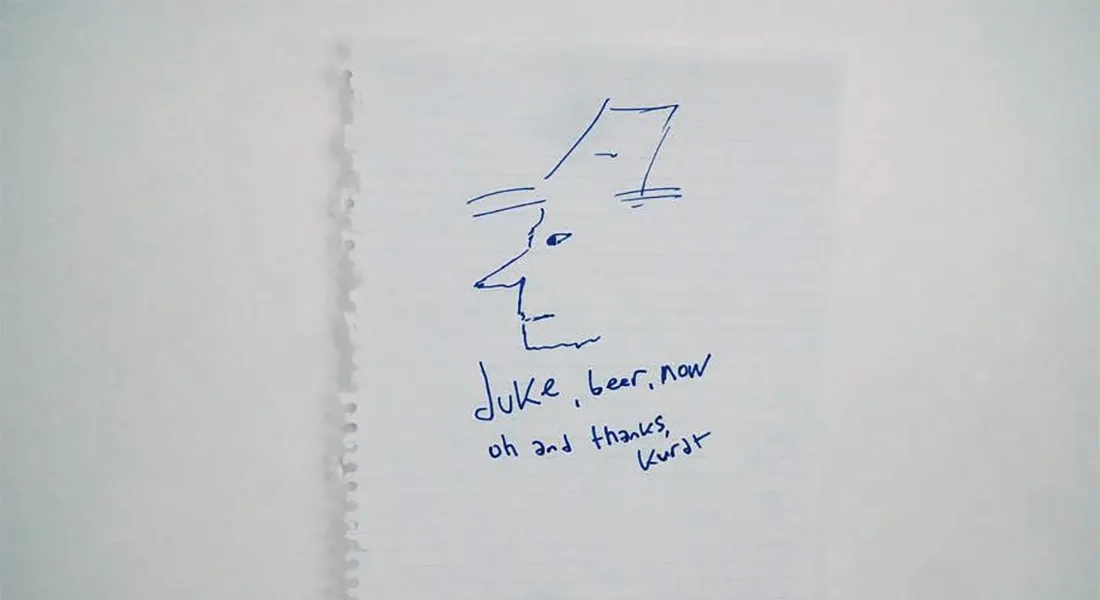 Juke, beer, now
oh and thanks,
Kurdt